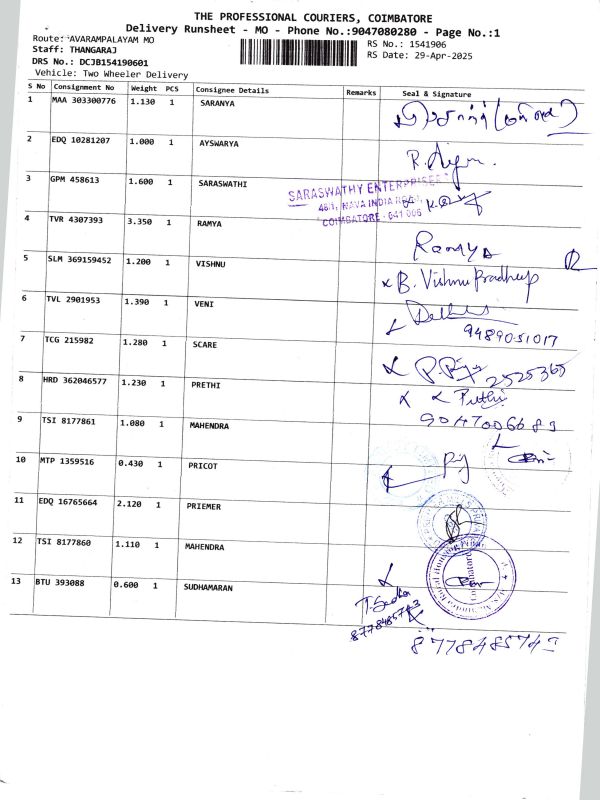 THE PROFESSIONAL COURIERS, COIMBATORE
Delivery Runsheet - MO - Phone No.:9047080280 - Page No.:1
Route: AVARAMPALAYAM MO
RS No.: 1541906
Staff: THANGARAJ
RS Date: 29-Apr-2025
DRS No.: DCJB154190601
Vehicle: Two Wheeler Delivery
S No Consignment No Weight PCS Consignee Details Remarks Seal & Signature
1 MAA 303300776 1.130 1 SARANYA
2 EDQ 10281207 1.000 1 AYSWARYA
3 GPM 458613 1.600 1 SARASWATHI
SARASWATHY ENTERPRISES
COIMBATORE - 641 006
4 TVR 4307393 3.350 1 RAMYA
Ramya
5 SLM 369159452 1.200 1 VISHNU
B. Vishnu Pradheep
6 TVL 2901953 1.390 1 VENI
9489051017
7 TCG 215982 1.280 1 SCARE
2525365
8 HRD 362046577 1.230 1 PRETHI
9047006683
9 TSI 8177861 1.080 1 MAHENDRA
10 MTP 1359516 0.430 1 PRICOT
11 EDQ 16765664 2.120 1 PRIEMER
12 TSI 8177860 1.110 1 MAHENDRA
Coimbatore
13 BTU 393088 0.600 1 SUDHAMARAN
T. Sudha
8778485743
8778485743